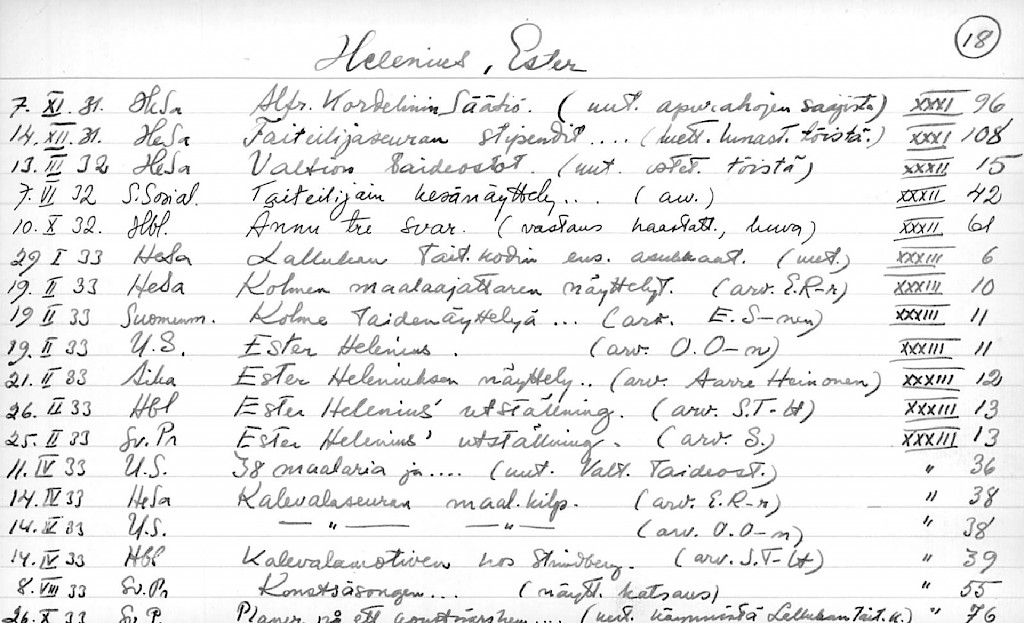 18
Helenius, Ester
7. XI. 31. HeSa Alfr. Kordelinin Säätiö. (uut. apurahojen saajista) XXXI 96
14. XII. 31. HeSa Taiteilijaseuran stipendit .... (luett. lunast. töistä.) XXXI 108
13. III 32 HeSa Valtion taideostot. (uut. ostet. töistä) XXXII 15
7. VI 32 S.Sosial. Taiteilijain kesänäyttely ... (arv.) XXXII 42
10. X 32. Hbl. Annu tre svar. (vastaus haastatt., kuva) XXXII 61
29 I 33 HeSa Lallukan Tait. kodin ens. asukkaat. (uut.) XXXIII 6
19. II 33 HeSa Kolmen maalaajattaren näyttelyt. (arv. E.R-r) XXXIII 10
19 II 33 Suomenm. Kolme Taidenäyttelyä ... (arv. E.S-nen) XXXIII 11
19. II 33 U.S. Ester Helenius. (arv. O.O-n) XXXIII 11
21. II 33 Aika Ester Heleniuksen näyttely.. (arv. Aarre Heinonen) XXXIII 12
26. II 33 Hbl Ester Helenius' utställning. (arv. S.T-lt) XXXIII 13
25. II 33 Sv.Pr Ester Helenius' utställning. (arv. S.) XXXIII 13
11. IV 33 U.S. 38 maalaria ja .... (uut. Valt. Taideost.) " 36
14. IV 33 HeSa Kalevalaseuran maal. kilp. (arv. E.R-r) " 38
14. IV 33 U.S. — " — — " — (arv. O.O-n) " 38
14. IV 33 Hbl Kalevalamotiven hos Strindberg. (arv. S.T-lt) " 39
8. VIII 33 Sv.Pr Konstsäsongen... (näytt. katsaus) " 55
26. X 33 Sv.P. Planer på ett (uut. Lallukan tait. k.) " 76